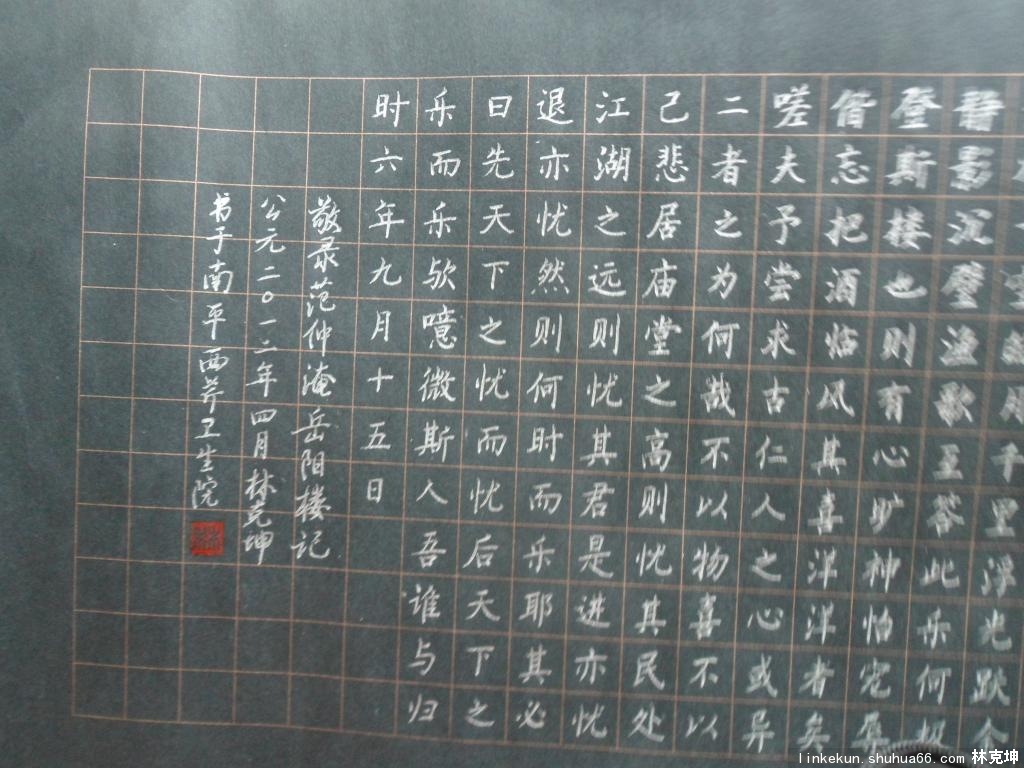 空皓月千里浮光跃金
静影沉璧渔歌互答此乐何极
登斯楼也则有心旷神怡宠辱
偕忘把酒临风其喜洋洋者矣
嗟夫予尝求古仁人之心或异
二者之为何哉不以物喜不以
己悲居庙堂之高则忧其民处
江湖之远则忧其君是进亦忧
退亦忧然则何时而乐耶其必
曰先天下之忧而忧后天下之
乐而乐欤噫微斯人吾谁与归
时六年九月十五日
敬录范仲淹岳阳楼记
公元二0一二年四月林克坤
书于南平西芹卫生院
linkekun.shuhua66.com 林克坤